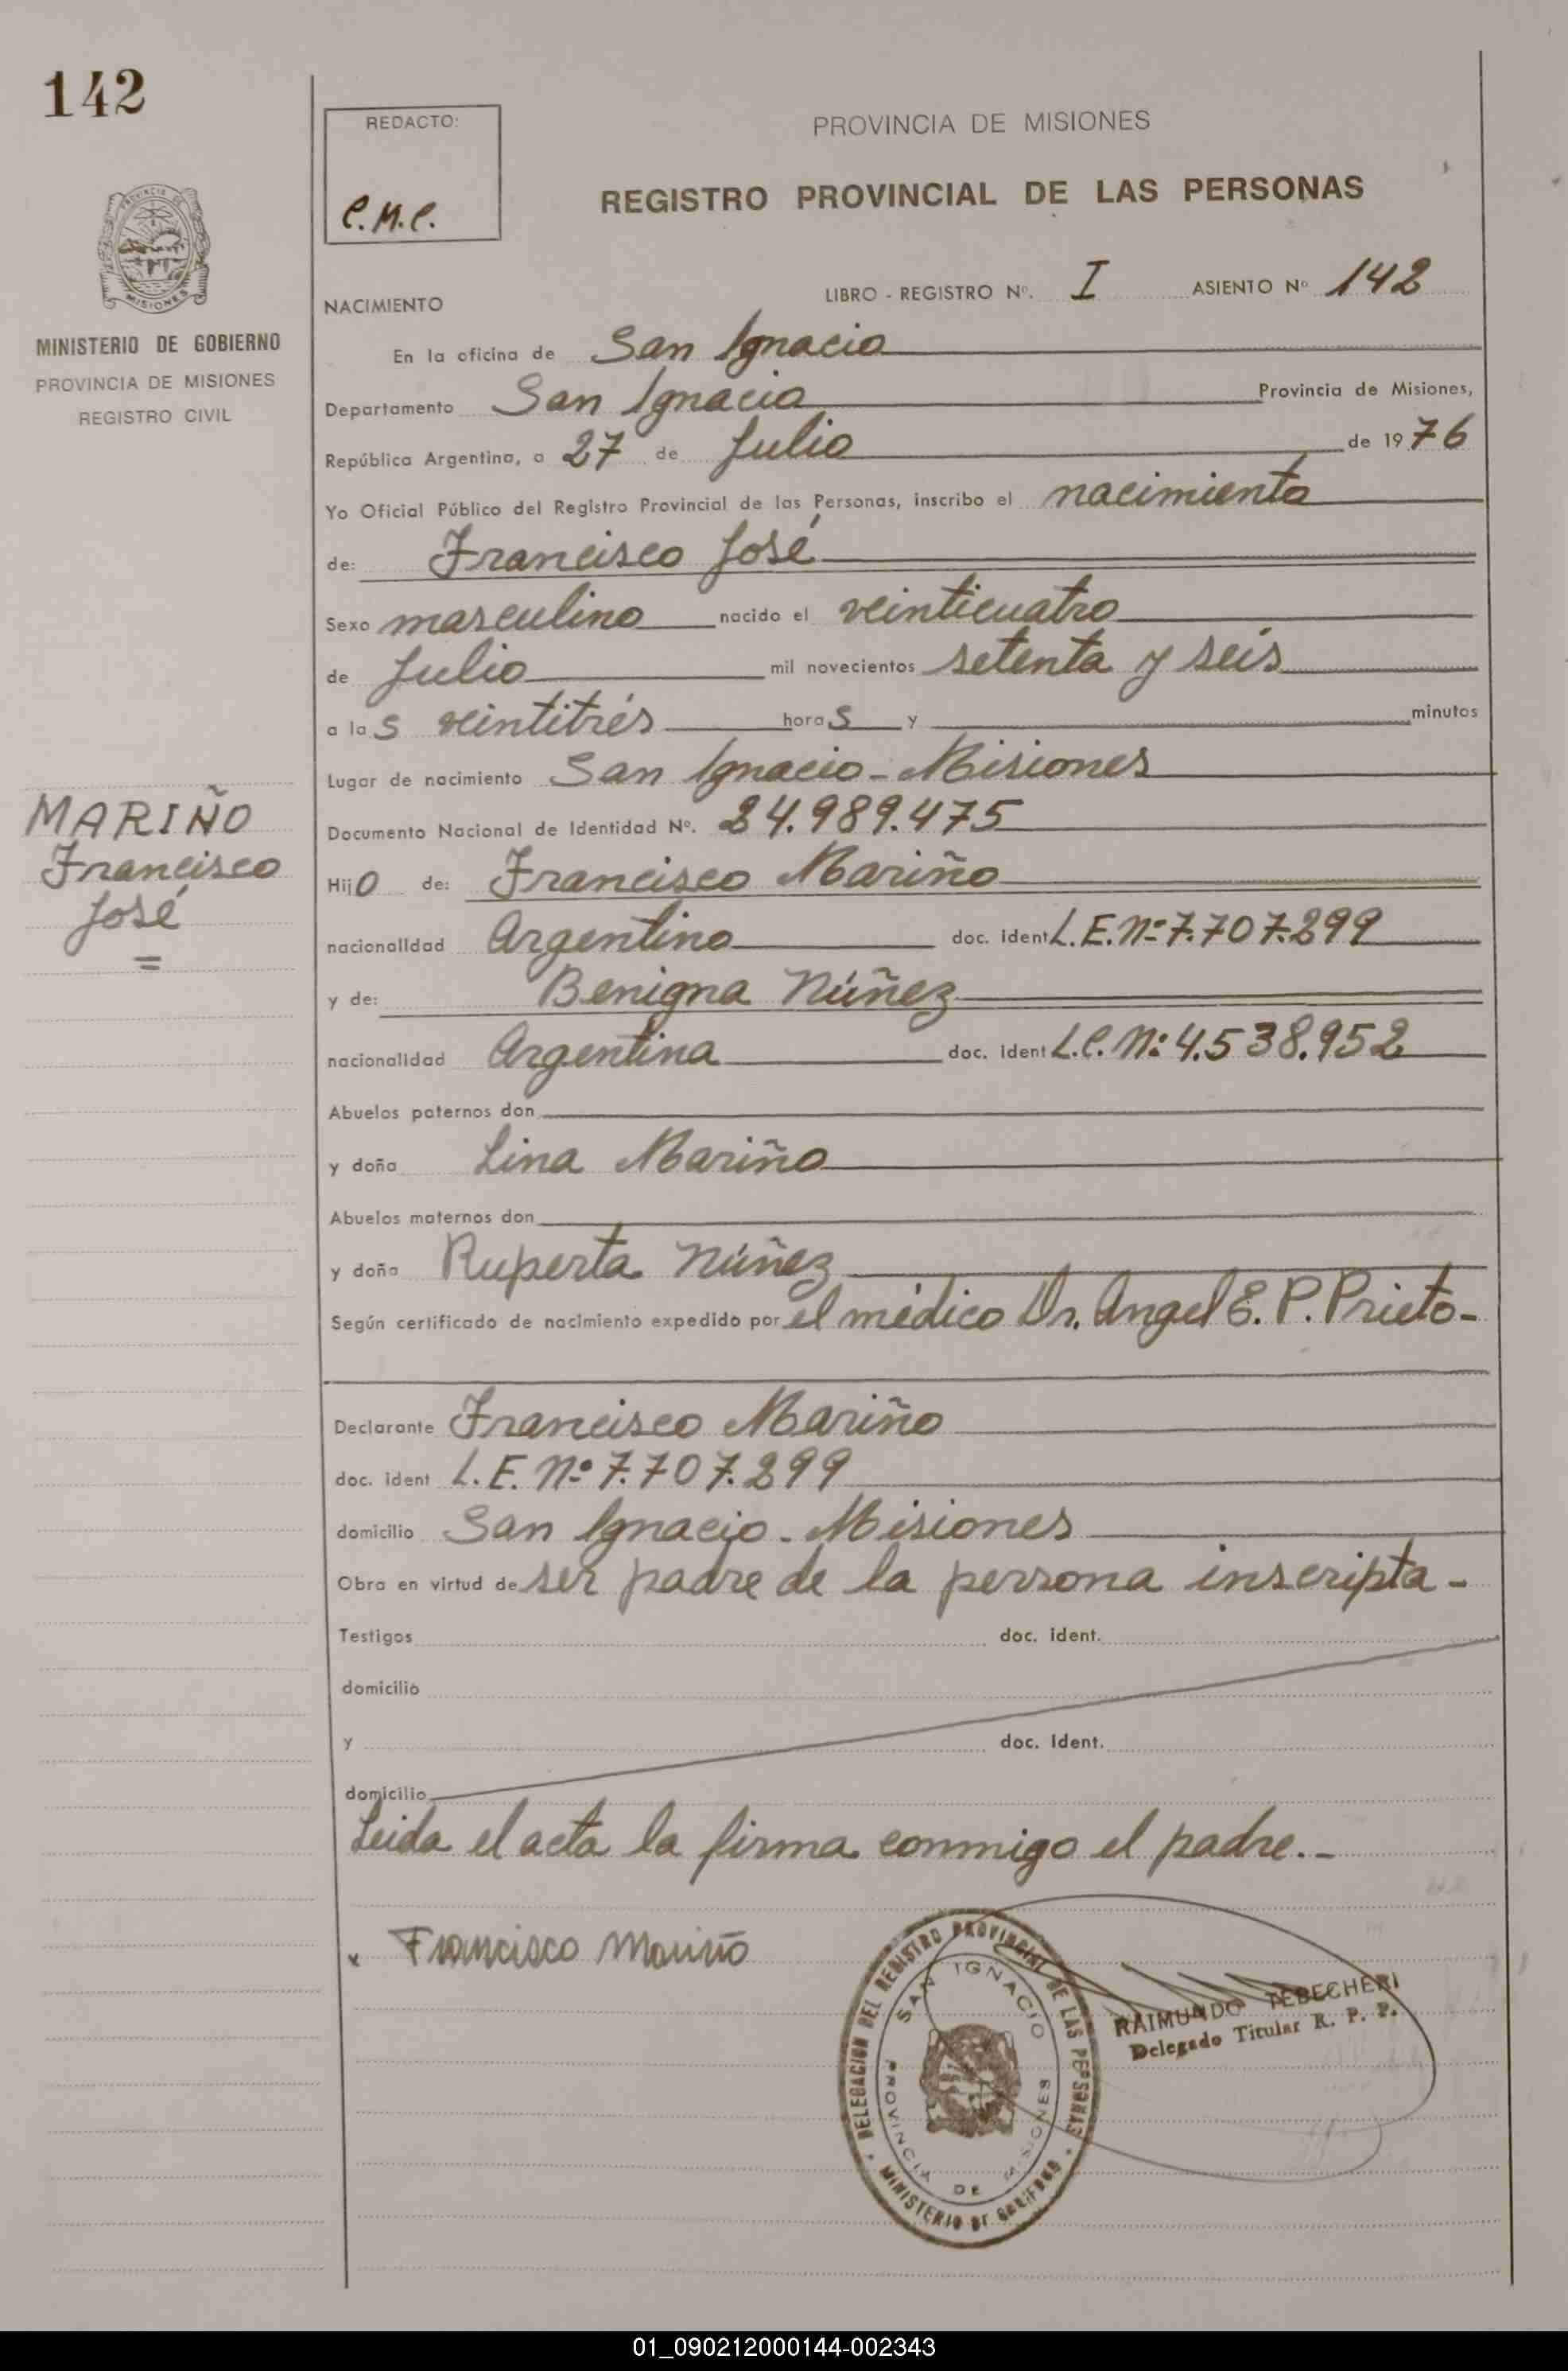 142
REDACTO:
C.M.C.
PROVINCIA DE MISIONES
REGISTRO PROVINCIAL DE LAS PERSONAS
PROVINCIA DE
MISIONES
MINISTERIO DE GOBIERNO
PROVINCIA DE MISIONES
REGISTRO CIVIL
NACIMIENTO
LIBRO - REGISTRO Nº. I ASIENTO Nº 142
En la oficina de San Ignacio
Departamento San Ignacio Provincia de Misiones,
República Argentina, a 27 de Julio de 1976
Yo Oficial Público del Registro Provincial de las Personas, inscribo el nacimiento
de: Francisco José
Sexo masculino nacido el veinticuatro
de Julio mil novecientos setenta y seis
a las veintitrés horas y minutos
Lugar de nacimiento San Ignacio - Misiones
Documento Nacional de Identidad Nº. 24.989.475
MARIÑO
Francisco
José
Hijo de: Francisco Mariño
nacionalidad Argentino doc. ident L.E. Nº 7.707.299
y de: Benigna Núñez
nacionalidad Argentina doc. ident L.C. Nº 4.538.952
Abuelos paternos don
y doña Lina Mariño
Abuelos maternos don
y doña Ruperta Núñez
Según certificado de nacimiento expedido por el médico Dr. Angel E. P. Prieto-
Declarante Francisco Mariño
doc. ident L.E. Nº 7.707.299
domicilio San Ignacio - Misiones
Obra en virtud de ser padre de la persona inscripta -
Testigos doc. ident.
domicilio
y doc. ident.
domicilio
Leida el acta la firma conmigo el padre.-
x Francisco Mariño
DELEGACION DEL REGISTRO PROVINCIAL DE LAS PERSONAS
SAN IGNACIO
PROVINCIA DE MISIONES
MINISTERIO DE GOBIERNO
RAIMUNDO TEBECHERI
Delegado Titular R. P. P.
01_090212000144-002343